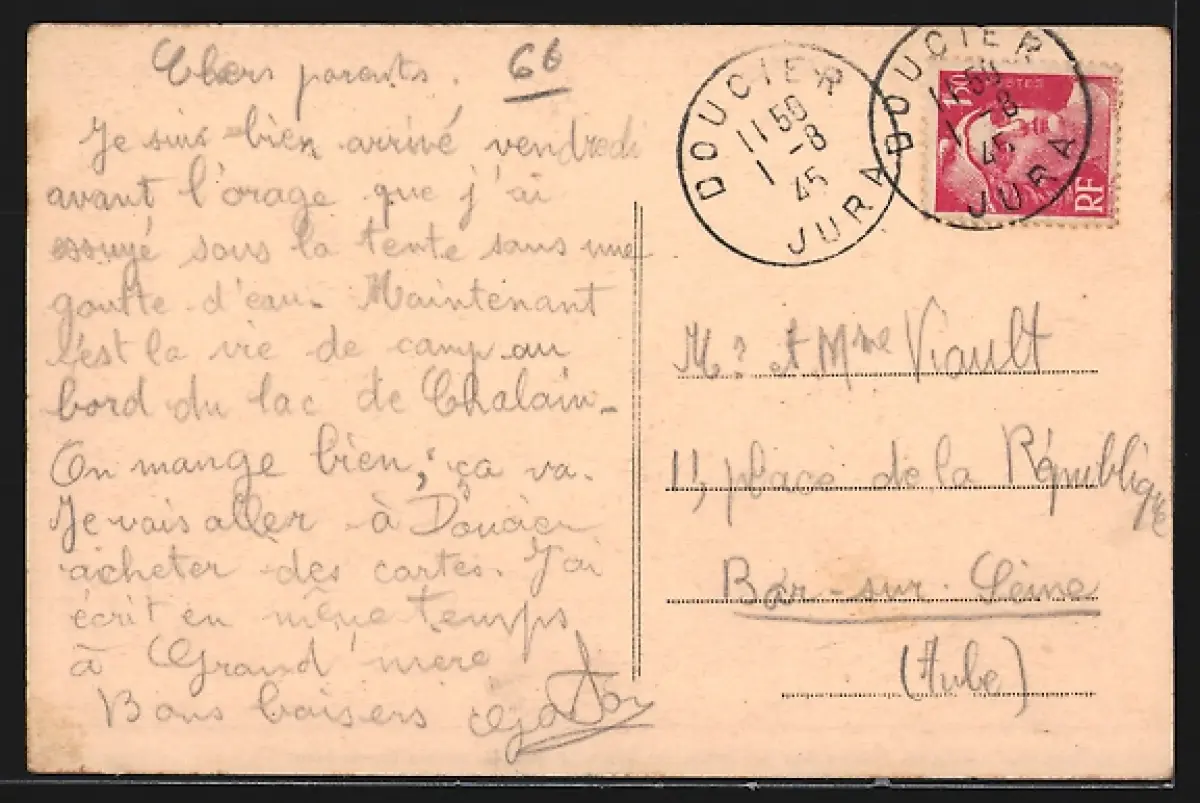 Chers parents. 66
Je suis bien arrivé vendredi
avant l'orage que j'ai
essuyé sous la tente sans une
goutte d'eau. Maintenant
c'est la vie de camp au
bord du lac de Chalain -
On mange bien, ça va.
Je vais aller à Doucier
acheter des cartes. J'ai
écrit en même temps
à Grand'mère
Bons baisers
DOUCIER
11 50
1 -8
45
JURA
DOUCIER
11 50
1 -8
45
JURA
1f50
POSTES
RF
Mr et Mme Viault
11, place de la République
Bar-sur-Seine
(Aube)